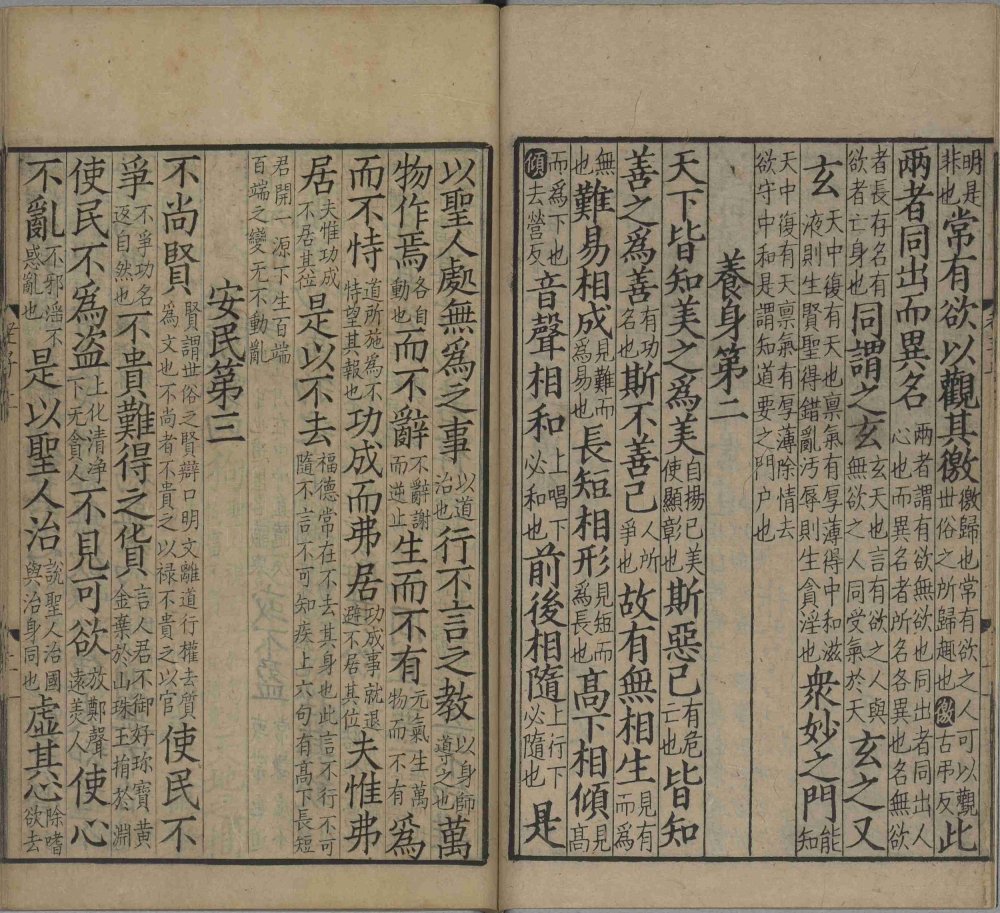 明是非也常有欲以觀其徼徼歸也常有欲之人可以觀世俗之所歸趣也徼古弔反此
兩者同出而異名兩者謂有欲無欲也同出者同出人心也而異名者所名各異也名無欲
者長存名有欲者亡身也同謂之玄玄天也言有欲之人與無欲之人同受氣於天玄之又
玄天中復有天也稟氣有厚薄得中和滋液則生賢聖得錯亂污辱則生貪淫也衆妙之門能知
天中復有天稟氣有厚薄除情去欲守中和是謂知道要之門户也
養身第二
天下皆知美之爲美自揚己美使顯彰也斯惡已有危亡也皆知
善之爲善有功名也斯不善已人所爭也故有無相生見有而爲
無也難易相成見難而爲易也長短相形見短而爲長也髙下相傾見髙
而爲下也傾去營反音聲相和上唱下必和也前後相隨上行下必隨也是
以聖人處無爲之事以道治也行不言之教以身師導之也萬
物作焉各自動也而不辭不辭謝而逆止生而不有元氣生萬物而不有爲
而不恃道所施爲不恃望其報也功成而弗居功成事就退避不居其位夫惟弗
居夫惟功成不居其位是以不去福德常在不去其身也此言不行不可隨不言不可知疾上六句有髙下長短
君開一源下生百端百端之變无不動亂
安民第三
不尚賢賢謂世俗之賢辯口明文離道行權去質爲文也不尚者不貴之以禄不貴之以官使民不
爭不爭功名返自然也不貴難得之貨言人君不御好珍寶黄金棄於山珠玉捐於淵
使民不爲盗上化清淨下无貪人不見可欲放鄭聲遠美人使心
不亂不邪淫不惑亂也是以聖人治說聖人治國與治身同也虛其心除嗜欲去